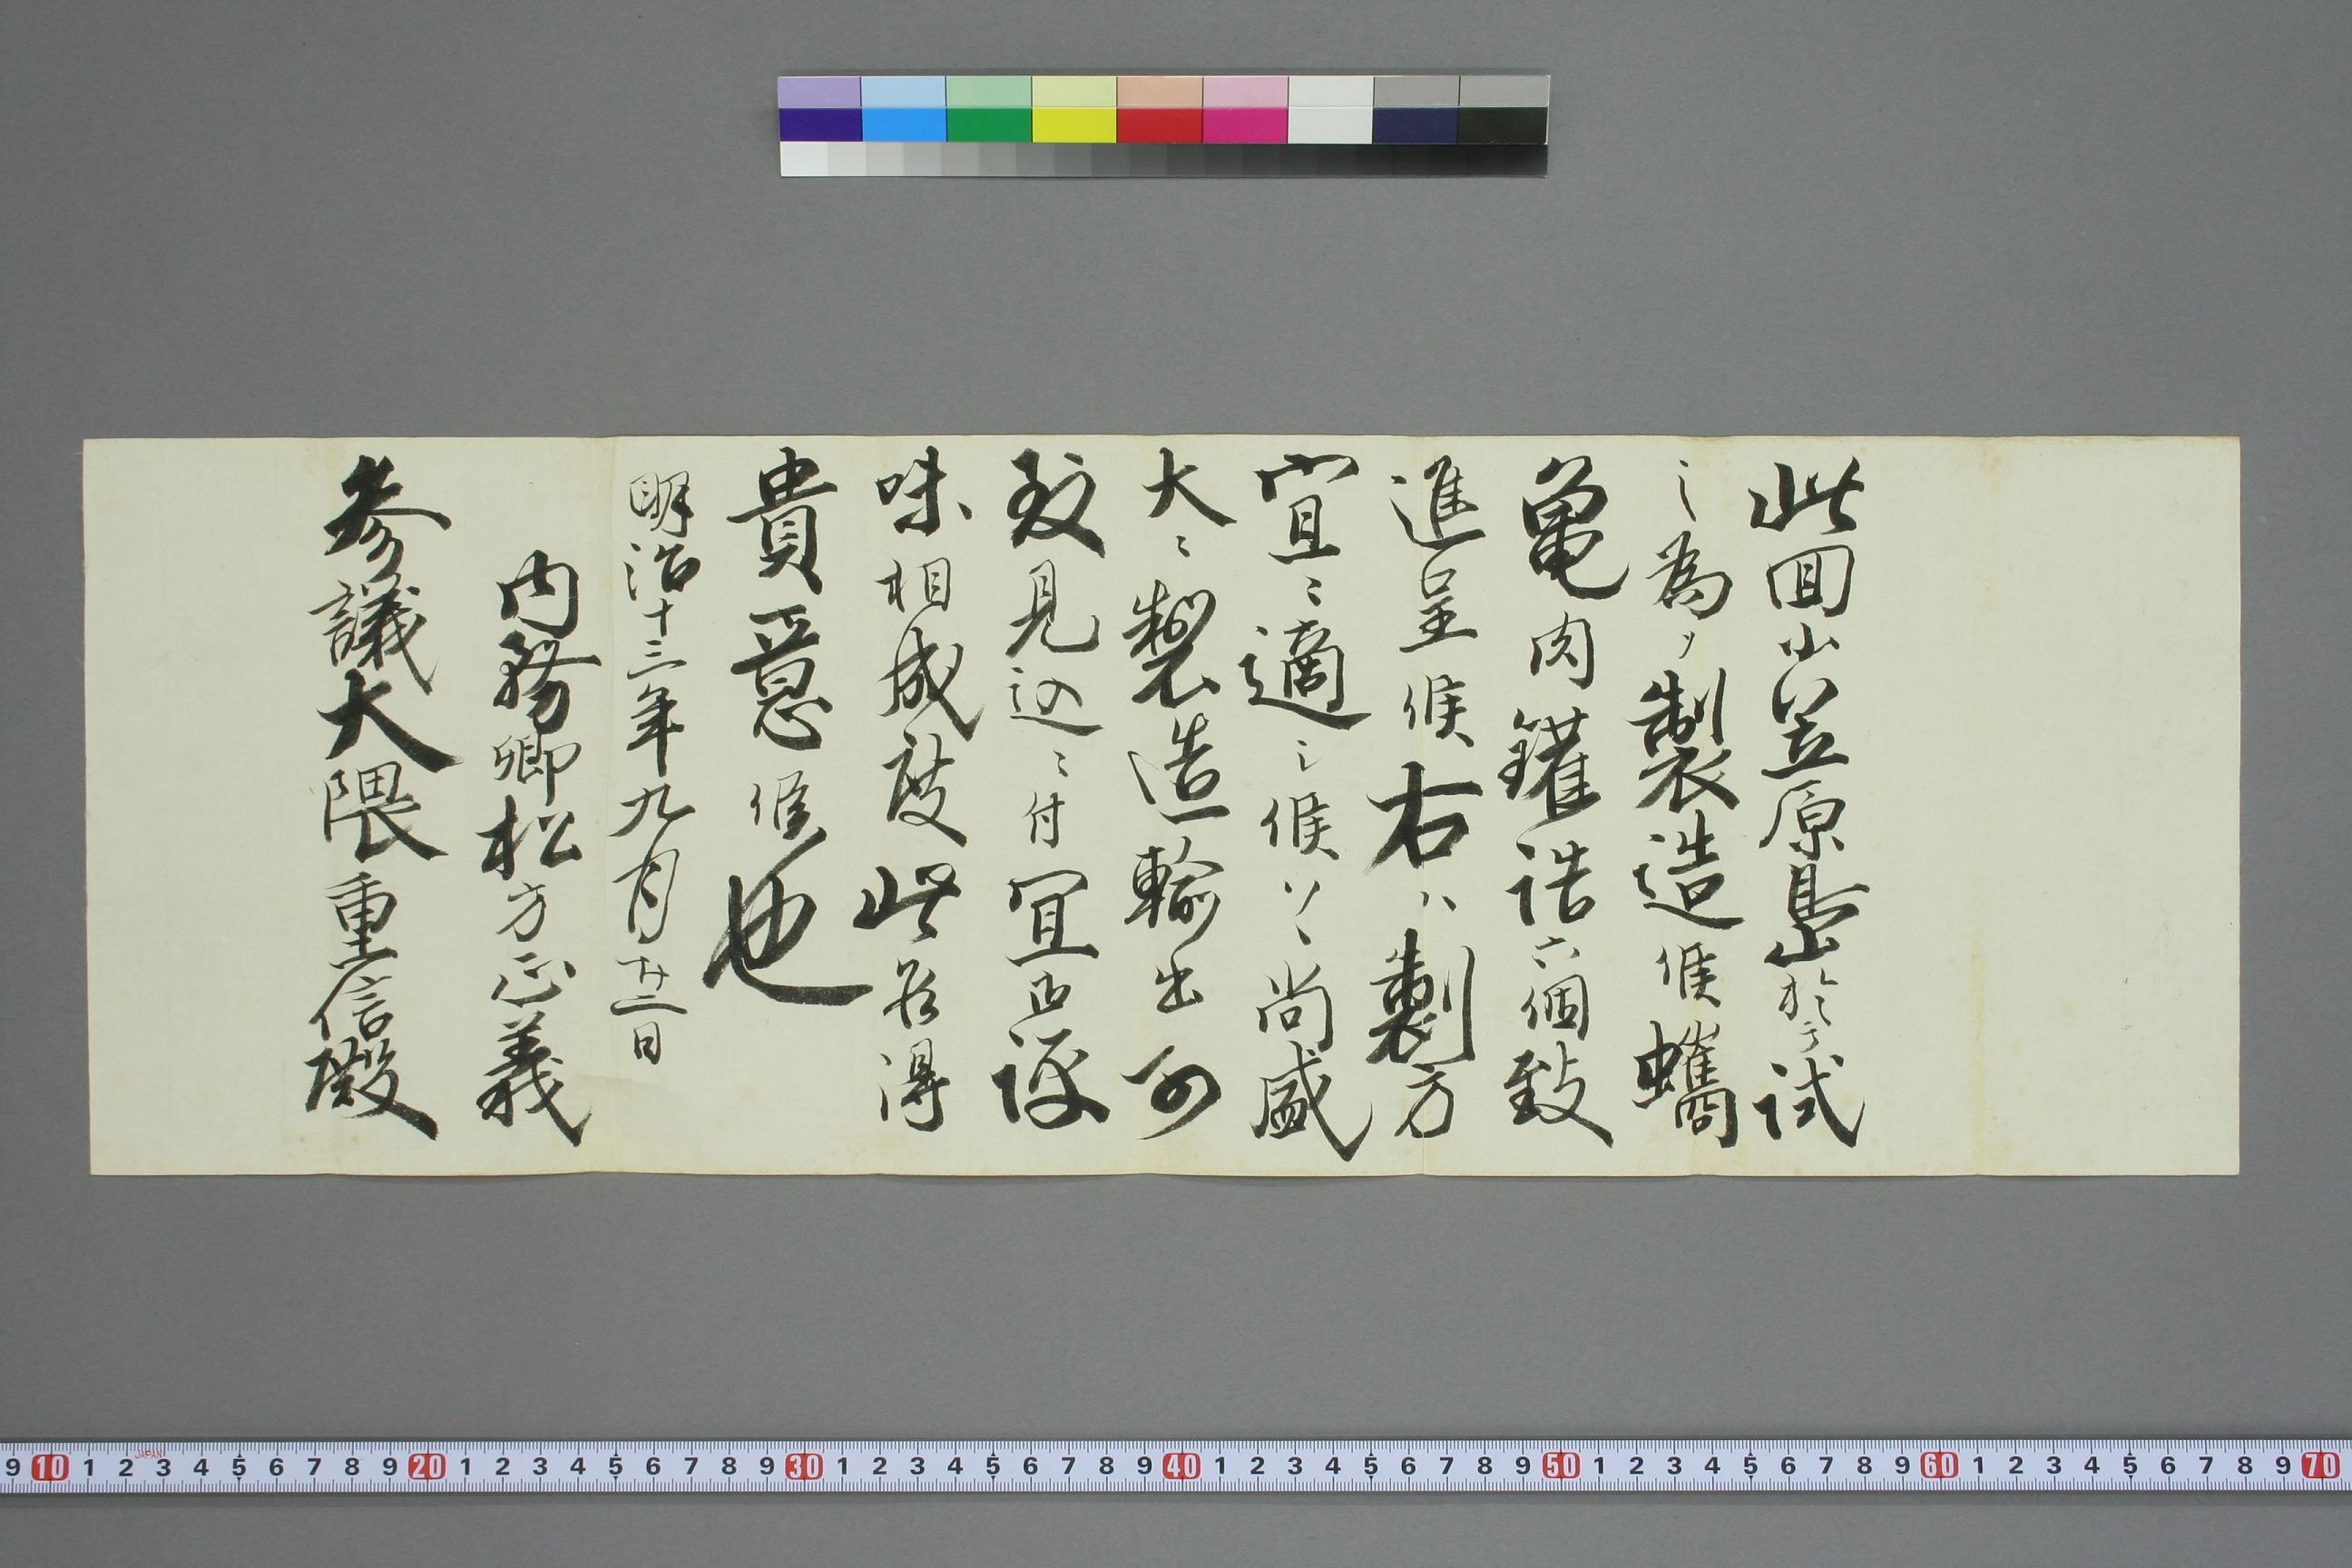 此回小笠原島於テ試
之為メ製造候蠵
亀肉鑵詰六個致
進呈候右ハ製方
宜ニ適之候ハヽ尚盛
大ニ製造輸出可
致見込ニ付宜御評
味相成度此段得
貴意候也
明治十三年九月廿二日
内務卿松方正義
参議大隈重信殿
9 10 1 2 3 4 5 6 7 8 9 20 1 2 3 4 5 6 7 8 9 30 1 2 3 4 5 6 7 8 9 40 1 2 3 4 5 6 7 8 9 50 1 2 3 4 5 6 7 8 9 60 1 2 3 4 5 6 7 8 9 70
JAPAN